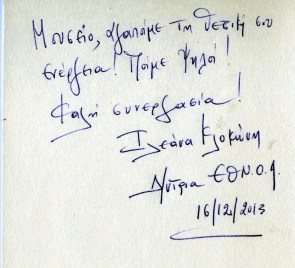 Μουσείο, αγαπάμε τη θετική σου
ενέργεια! Πάμε ψηλά!
Καλή συνεργασία!
Ιλεάνα
Δ/τρια Ε.Θ.Ν.Ο.Α.
16/12/2013